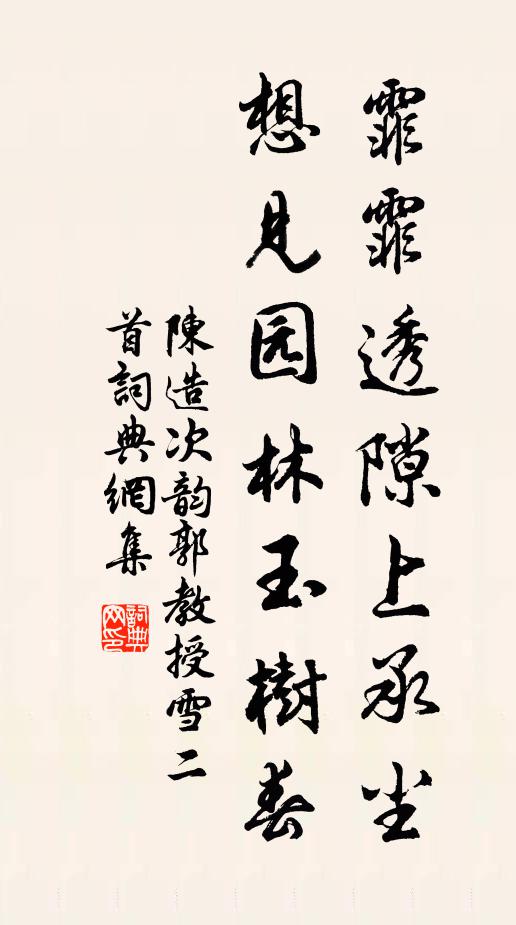 霏霏透隙上承尘
想见园林玉樹春
陳造次韵郭教授雪二
首詞典網集
詞典网印